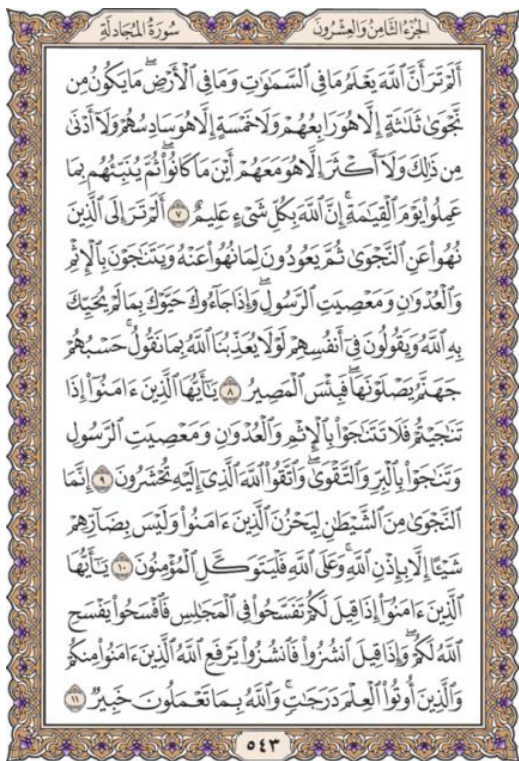 الجزء الثامن والعشرون
سورة المجادلة
أَلَمْ تَرَ أَنَّ ٱللَّهَ يَعْلَمُ مَا فِي ٱلسَّمَٰوَٰتِ وَمَا فِي ٱلْأَرْضِۖ مَا يَكُونُ مِن
نَّجْوَىٰ ثَلَٰثَةٍ إِلَّا هُوَ رَابِعُهُمْ وَلَا خَمْسَةٍ إِلَّا هُوَ سَادِسُهُمْ وَلَآ أَدْنَىٰ
مِن ذَٰلِكَ وَلَآ أَكْثَرَ إِلَّا هُوَ مَعَهُمْ أَيْنَ مَا كَانُوا۟ۖ ثُمَّ يُنَبِّئُهُم بِمَا
عَمِلُوا۟ يَوْمَ ٱلْقِيَٰمَةِۚ إِنَّ ٱللَّهَ بِكُلِّ شَىْءٍ عَلِيمٌ ٧ أَلَمْ تَرَ إِلَى ٱلَّذِينَ
نُهُوا۟ عَنِ ٱلنَّجْوَىٰ ثُمَّ يَعُودُونَ لِمَا نُهُوا۟ عَنْهُ وَيَتَنَٰجَوْنَ بِٱلْإِثْمِ
وَٱلْعُدْوَٰنِ وَمَعْصِيَتِ ٱلرَّسُولِۖ وَإِذَا جَآءُوكَ حَيَّوْكَ بِمَا لَمْ يُحَيِّكَ
بِهِ ٱللَّهُ وَيَقُولُونَ فِىٓ أَنفُسِهِمْ لَوْلَا يُعَذِّبُنَا ٱللَّهُ بِمَا نَقُولُۚ حَسْبُهُمْ
جَهَنَّمُ يَصْلَوْنَهَاۖ فَبِئْسَ ٱلْمَصِيرُ ٨ يَٰٓأَيُّهَا ٱلَّذِينَ ءَامَنُوٓا۟ إِذَا
تَنَٰجَيْتُمْ فَلَا تَتَنَٰجَوْا۟ بِٱلْإِثْمِ وَٱلْعُدْوَٰنِ وَمَعْصِيَتِ ٱلرَّسُولِ
وَتَنَٰجَوْا۟ بِٱلْبِرِّ وَٱلتَّقْوَىٰۖ وَٱتَّقُوا۟ ٱللَّهَ ٱلَّذِىٓ إِلَيْهِ تُحْشَرُونَ ٩ إِنَّمَا
ٱلنَّجْوَىٰ مِنَ ٱلشَّيْطَٰنِ لِيَحْزُنَ ٱلَّذِينَ ءَامَنُوا۟ وَلَيْسَ بِضَآرِّهِمْ
شَيْـًٔا إِلَّا بِإِذْنِ ٱللَّهِۚ وَعَلَى ٱللَّهِ فَلْيَتَوَكَّلِ ٱلْمُؤْمِنُونَ ١٠ يَٰٓأَيُّهَا
ٱلَّذِينَ ءَامَنُوٓا۟ إِذَا قِيلَ لَكُمْ تَفَسَّحُوا۟ فِى ٱلْمَجَٰلِسِ فَٱفْسَحُوا۟ يَفْسَحِ
ٱللَّهُ لَكُمْۖ وَإِذَا قِيلَ ٱنشُزُوا۟ فَٱنشُزُوا۟ يَرْفَعِ ٱللَّهُ ٱلَّذِينَ ءَامَنُوا۟ مِنكُمْ
وَٱلَّذِينَ أُوتُوا۟ ٱلْعِلْمَ دَرَجَٰتٍۚ وَٱللَّهُ بِمَا تَعْمَلُونَ خَبِيرٌ ١١
٥٤٣